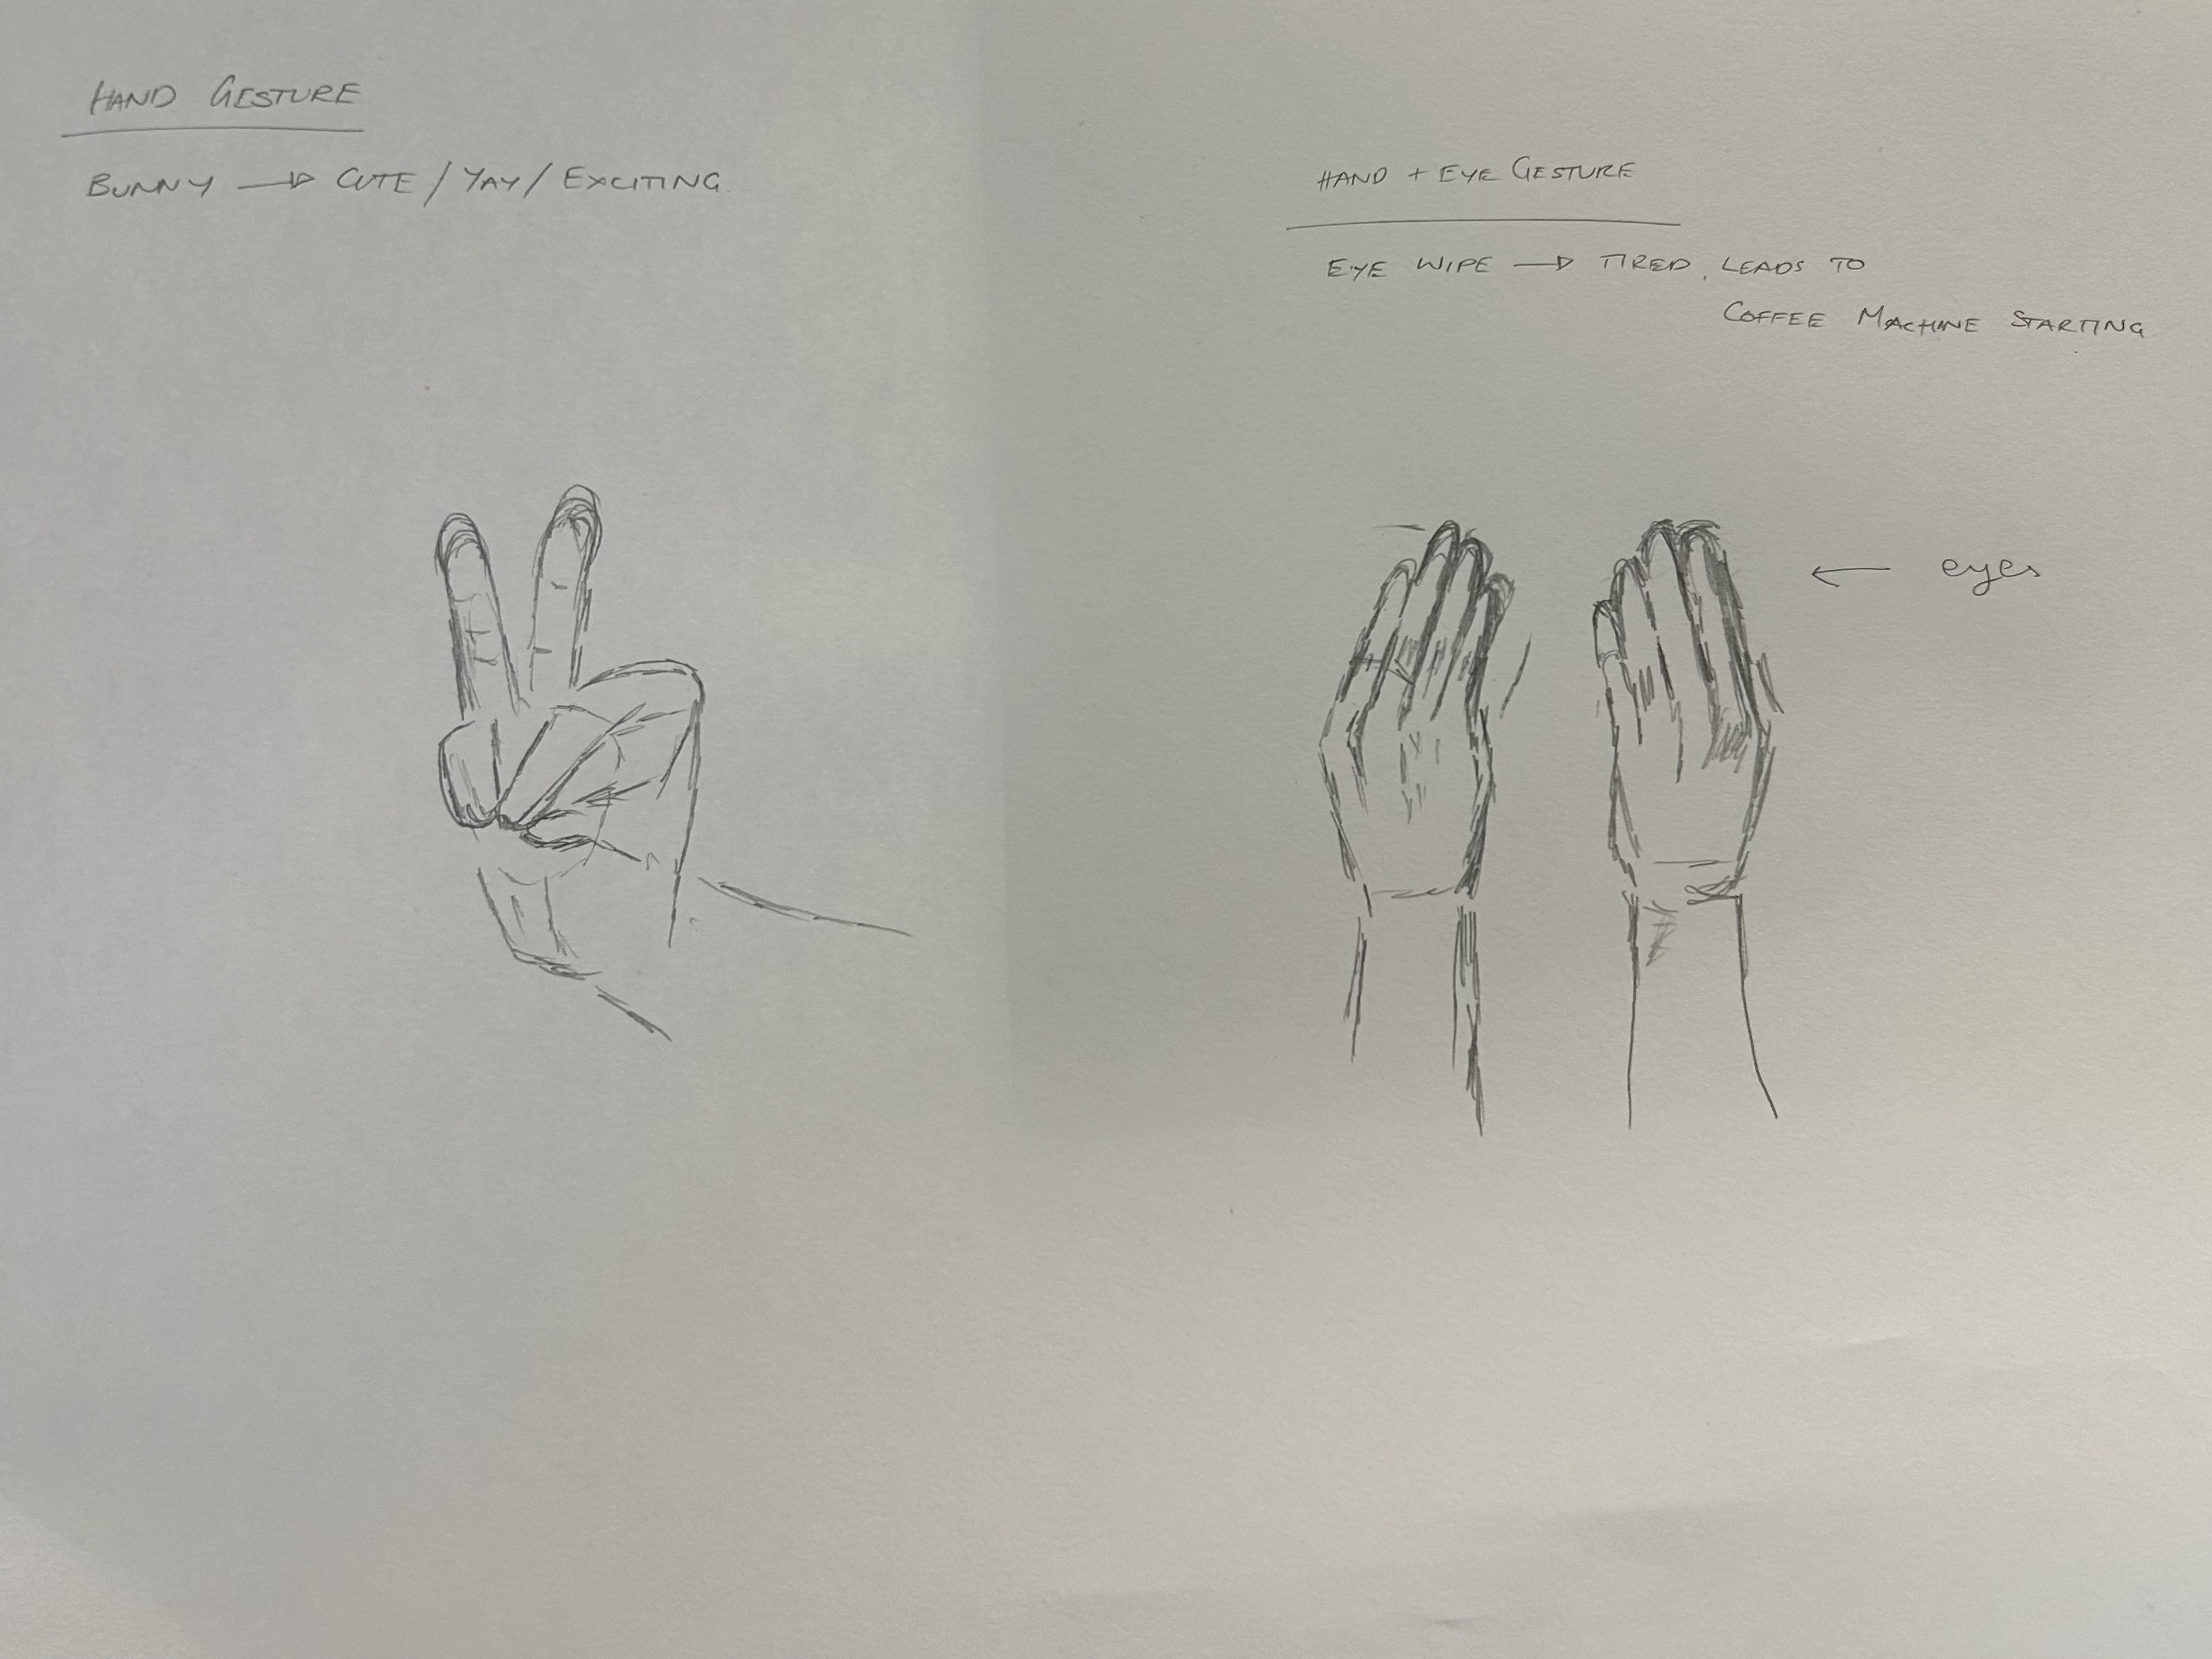 HAND GESTURE
BUNNY → CUTE / YAY / EXCITING.
HAND + EYE GESTURE
EYE WIPE → TIRED, LEADS TO
COFFEE MACHINE STARTING
← eyes